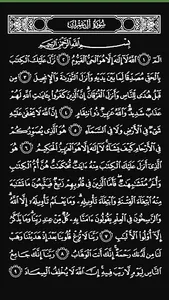 سُورَةُ آلِ عِمْرَانَ
بِسْمِ ٱللَّهِ ٱلرَّحْمَٰنِ ٱلرَّحِيمِ
الٓمٓ ١ ٱللَّهُ لَآ إِلَٰهَ إِلَّا هُوَ ٱلْحَىُّ ٱلْقَيُّومُ ٢ نَزَّلَ عَلَيْكَ ٱلْكِتَٰبَ
بِٱلْحَقِّ مُصَدِّقًا لِّمَا بَيْنَ يَدَيْهِ وَأَنزَلَ ٱلتَّوْرَىٰةَ وَٱلْإِنجِيلَ ٣ مِن
قَبْلُ هُدًى لِّلنَّاسِ وَأَنزَلَ ٱلْفُرْقَانَ إِنَّ ٱلَّذِينَ كَفَرُوا۟ بِـَٔايَٰتِ ٱللَّهِ لَهُمْ
عَذَابٌ شَدِيدٌ وَٱللَّهُ عَزِيزٌ ذُو ٱنتِقَامٍ ٤ إِنَّ ٱللَّهَ لَا يَخْفَىٰ عَلَيْهِ
شَىْءٌ فِى ٱلْأَرْضِ وَلَا فِى ٱلسَّمَآءِ ٥ هُوَ ٱلَّذِى يُصَوِّرُكُمْ
فِى ٱلْأَرْحَامِ كَيْفَ يَشَآءُ لَآ إِلَٰهَ إِلَّا هُوَ ٱلْعَزِيزُ ٱلْحَكِيمُ ٦
هُوَ ٱلَّذِىٓ أَنزَلَ عَلَيْكَ ٱلْكِتَٰبَ مِنْهُ ءَايَٰتٌ مُّحْكَمَٰتٌ هُنَّ أُمُّ ٱلْكِتَٰبِ
وَأُخَرُ مُتَشَٰبِهَٰتٌ فَأَمَّا ٱلَّذِينَ فِى قُلُوبِهِمْ زَيْغٌ فَيَتَّبِعُونَ مَا تَشَٰبَهَ
مِنْهُ ٱبْتِغَآءَ ٱلْفِتْنَةِ وَٱبْتِغَآءَ تَأْوِيلِهِۦ وَمَا يَعْلَمُ تَأْوِيلَهُۥٓ إِلَّا ٱللَّهُ
وَٱلرَّٰسِخُونَ فِى ٱلْعِلْمِ يَقُولُونَ ءَامَنَّا بِهِۦ كُلٌّ مِّنْ عِندِ رَبِّنَا وَمَا يَذَّكَّرُ
إِلَّآ أُو۟لُوا۟ ٱلْأَلْبَٰبِ ٧ رَبَّنَا لَا تُزِغْ قُلُوبَنَا بَعْدَ إِذْ هَدَيْتَنَا وَهَبْ
لَنَا مِن لَّدُنكَ رَحْمَةً إِنَّكَ أَنتَ ٱلْوَهَّابُ ٨ رَبَّنَآ إِنَّكَ جَامِعُ
ٱلنَّاسِ لِيَوْمٍ لَّا رَيْبَ فِيهِ إِنَّ ٱللَّهَ لَا يُخْلِفُ ٱلْمِيعَادَ ٩